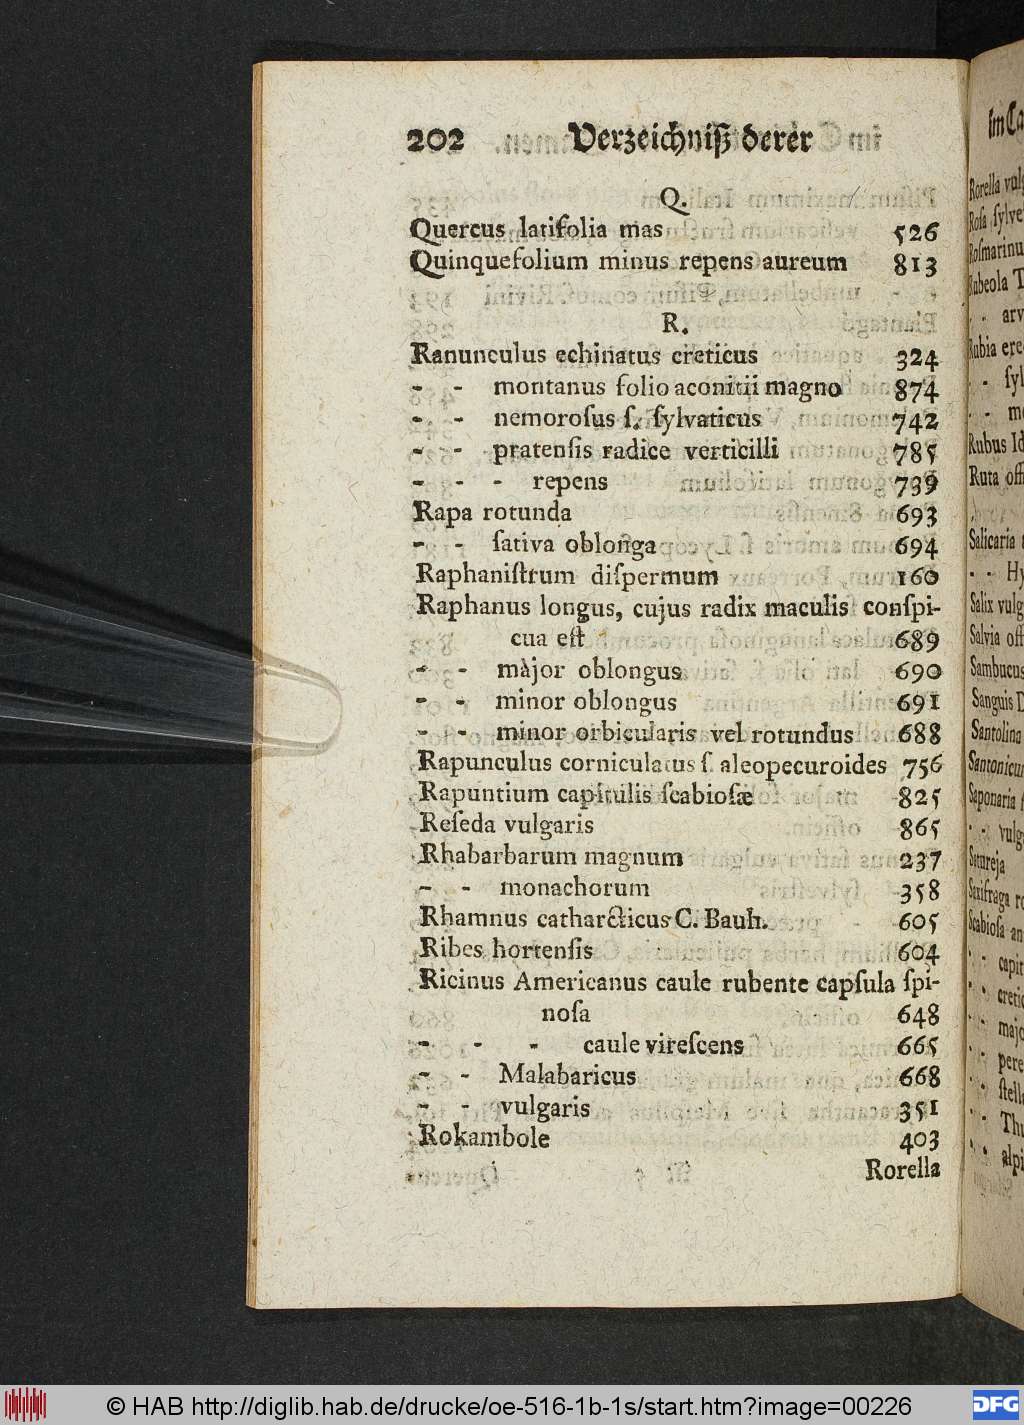 202 Verzeichniß derer
Q.
Quercus latifolia mas 526
Quinquefolium minus repens aureum 813
R.
Ranunculus echinatus creticus 324
- - montanus folio aconitii magno 874
- - nemoroſus ſ. ſylvaticus 742
- - pratenſis radice verticilli 785
- - - repens 739
Rapa rotunda 693
- - ſativa oblonga 694
Raphaniſtrum diſpermum 160
Raphanus longus, cujus radix maculis conſpi-
cua eſt 689
- - màjor oblongus 690
- - minor oblongus 691
- - minor orbicularis vel rotundus 688
Rapunculus corniculatus ſ. aleopecuroides 756
Rapuntium capitulis ſcabioſæ 825
Reſeda vulgaris 865
Rhabarbarum magnum 237
- - monachorum 358
Rhamnus catharcticus C. Bauh. 605
Ribes hortenſis 604
Ricinus Americanus caule rubente capſula ſpi-
noſa 648
- - - caule vireſcens 665
- - Malabaricus 668
- - vulgaris 351
Rokambole 403
Rorella
Rorella
Roſa
Rubeola
Rubia
Rubus
Ruta
Salicaria
Salix
Salvia
Sambucus
Sanguis
Santolina
Saponaria
Satureja
Saxifraga
Scabioſa
© HAB http://diglib.hab.de/drucke/oe-516-1b-1s/start.htm?image=00226
DFG